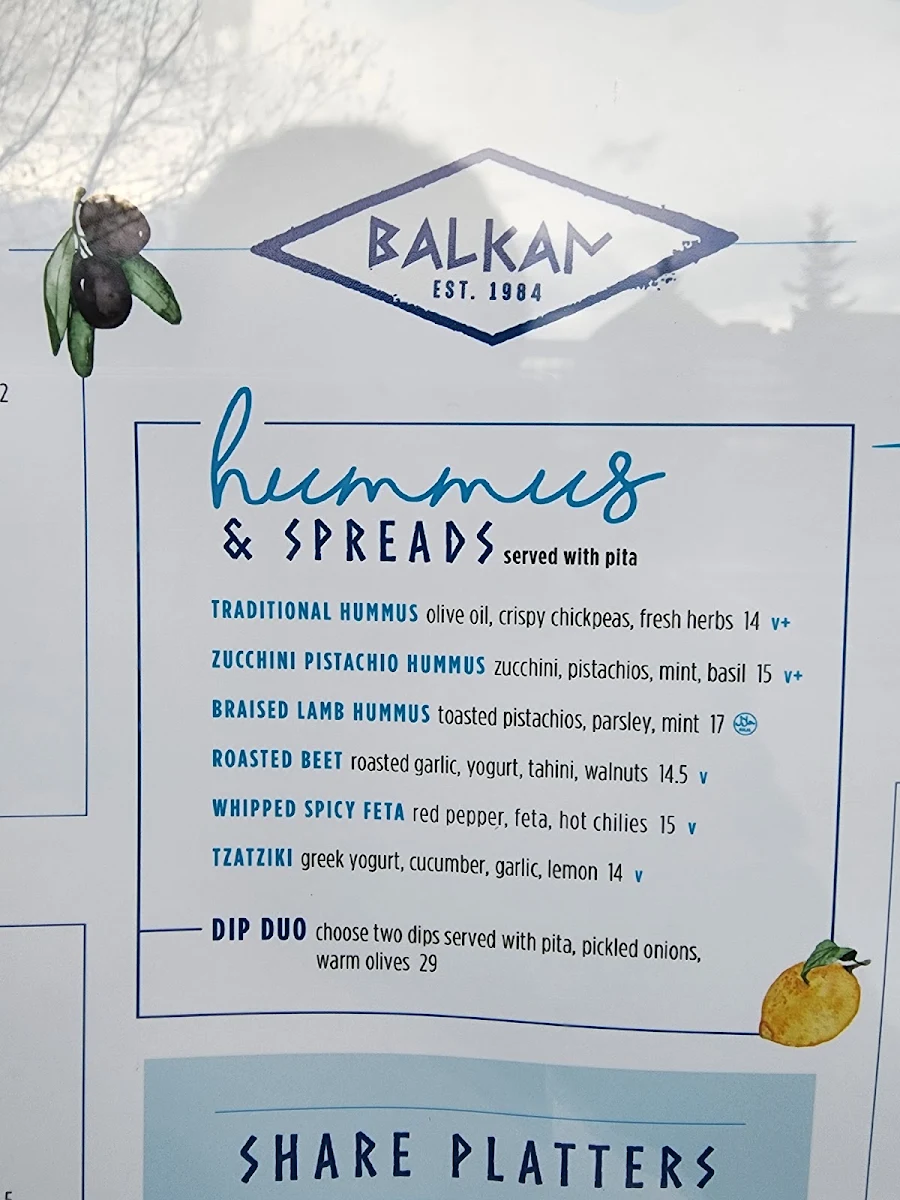 BALKAN
EST. 1984
2
hummus
& SPREADS served with pita
TRADITIONAL HUMMUS olive oil, crispy chickpeas, fresh herbs 14 v+
ZUCCHINI PISTACHIO HUMMUS zucchini, pistachios, mint, basil 15 v+
BRAISED LAMB HUMMUS toasted pistachios, parsley, mint 17
ROASTED BEET roasted garlic, yogurt, tahini, walnuts 14.5 v
WHIPPED SPICY FETA red pepper, feta, hot chilies 15 v
TZATZIKI greek yogurt, cucumber, garlic, lemon 14 v
DIP DUO choose two dips served with pita, pickled onions,
warm olives 29
SHARE PLATTERS